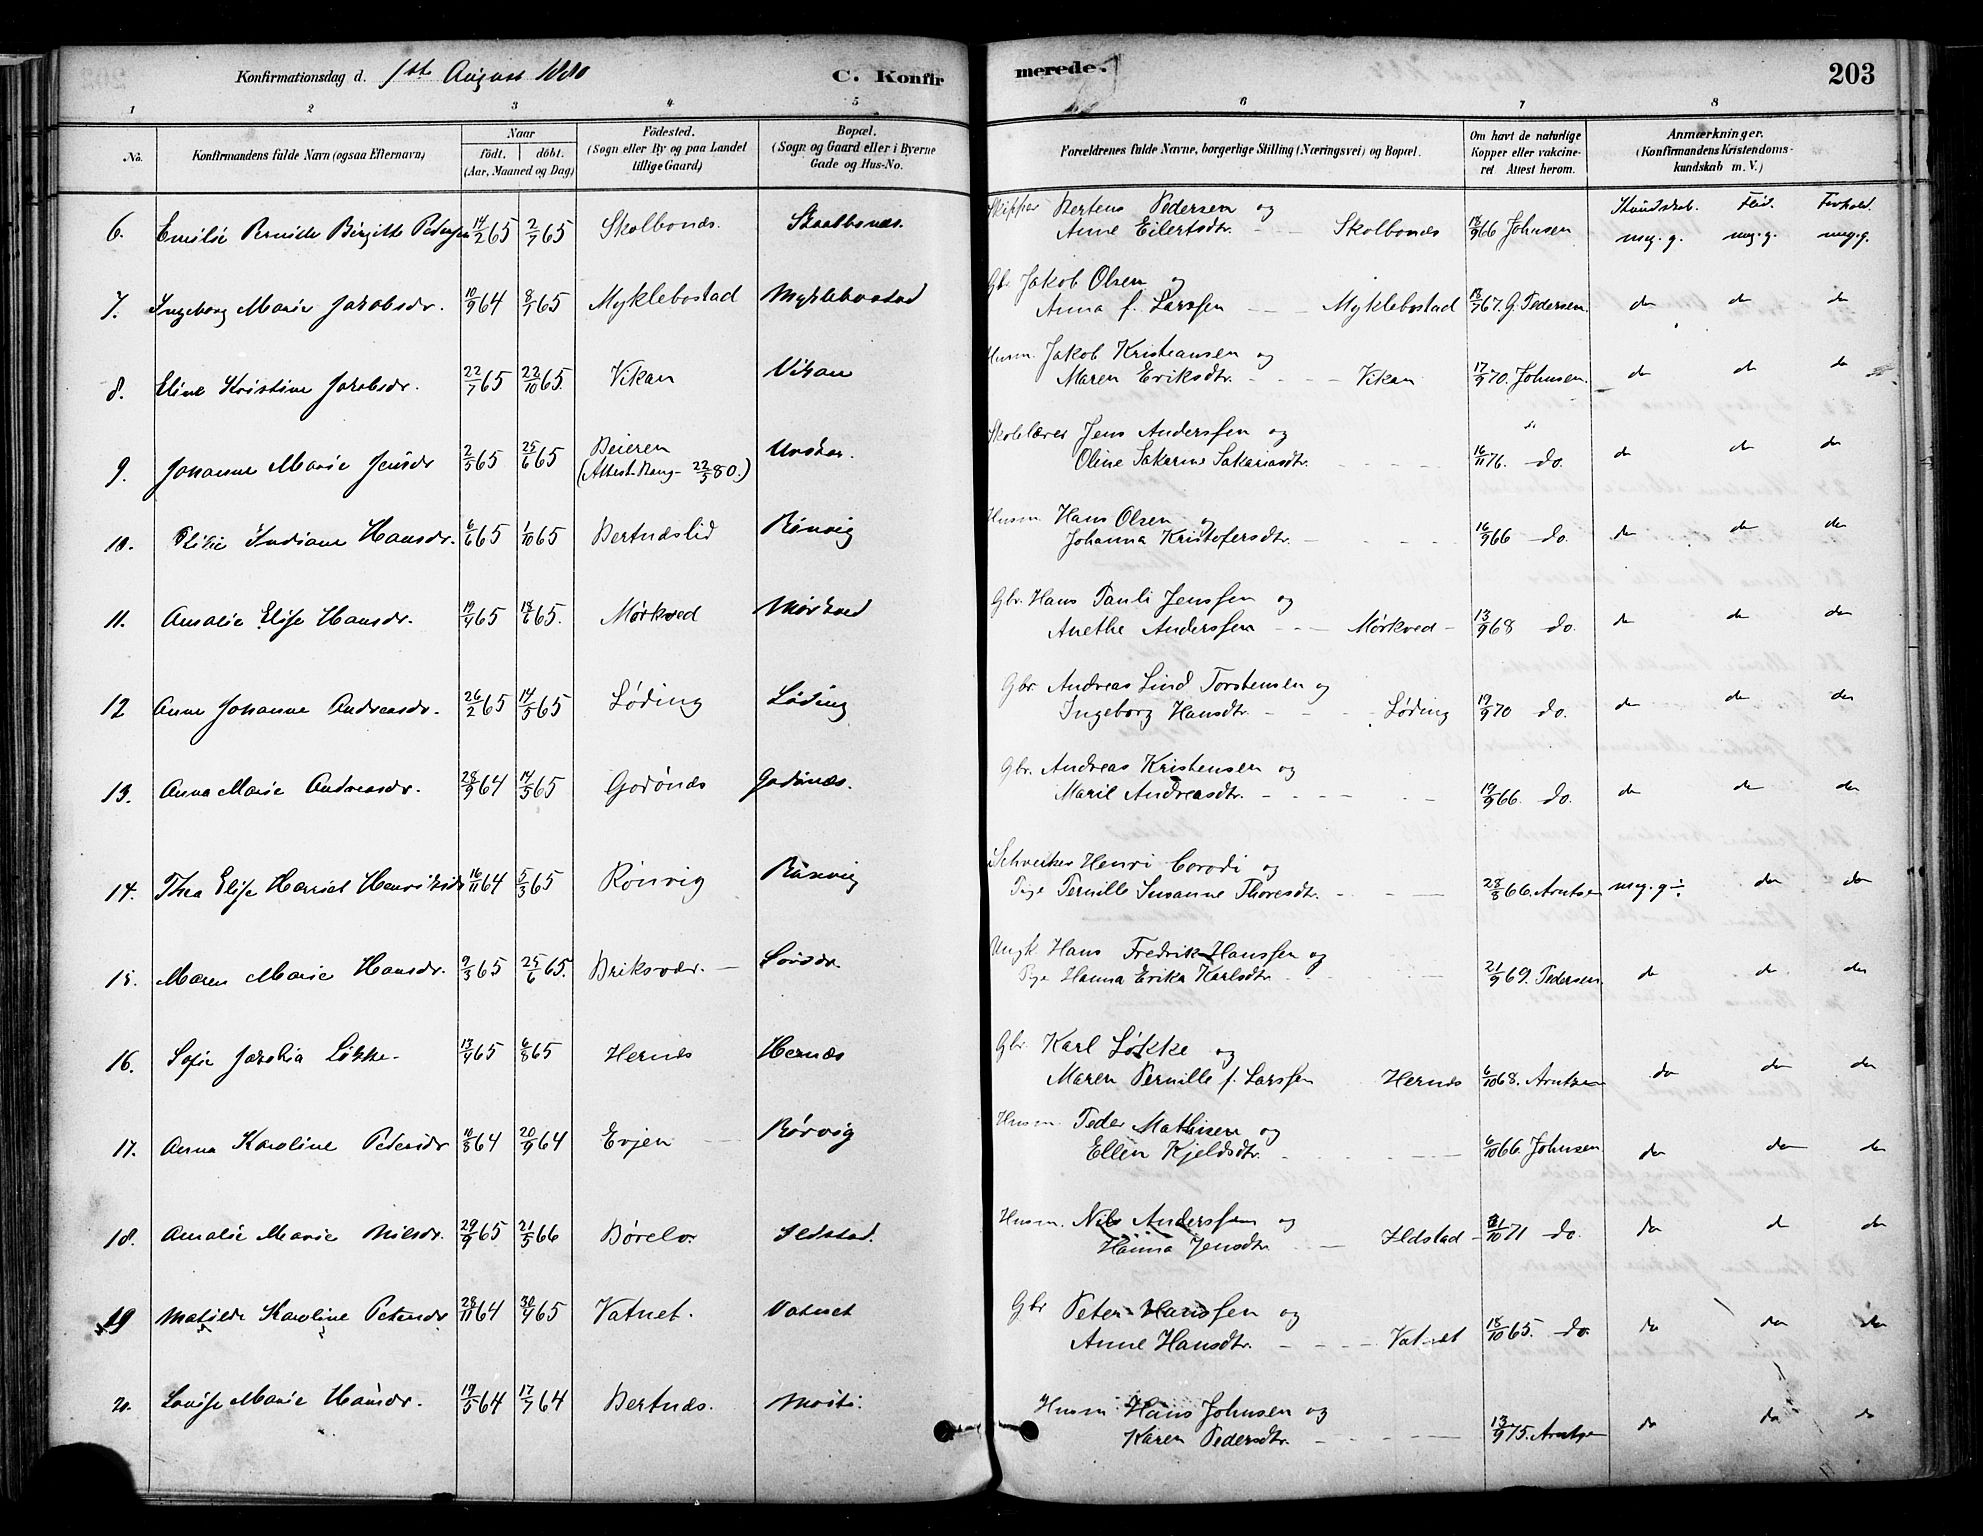 Konfirmationsdag d. 1ste August 1880 C. Konfirmerede. 203
1 2 3 4 5 6 7 8
No. Konfirmandens fulde Navn (ogsaa Efternavn) Naar födt. döbt. (Aar, Maaned og Dag) Födested. (Sogn eller By og paa Landet tillige Gaard) Bopæl. (Sogn og Gaard eller i Byerne Gade og Hus-No. Forældrenes fulde Navne, borgerlige Stilling (Næringsvei) og Bopæl. Om havt de naturlige Kopper eller vakcineret Attest herom. Anmærkninger. (Konfirmandens Kristendomskundskab m. V.)
Skipper Bertens Pedersen og Kundskab. Flid. Forhold.
6. Emilie Birgitte Pedersen 14/2 65 2/7 65 Skolbones. Skaalbones. Anne Eilertsdtr. Skolbones 18/9 66 Johnsen meg. g. meg. g. meg. g.
Gbr. Jakob Olsen og
7. Ingeborg Marie Jakobsdr. 10/9 64 8/1 65 Myklebostad Myklebostad Anna f. Larssen Myklebostad 67. G. Pedersen do do do
Husm. Jakob Kristiansen og
8. Eline Kristine Jakobsdr. 22/7 65 22/10 65. Vikan Vikan Maren Eriksdtr. Vikan 17/9 70. Johnsen. do do do
Skolelærer Jens Anderssen og
9. Johanne Marie Jensdr 2/5 65 25/6 65 Beieren (Attest 22/5 80.) Oline Sakarine Sakariasdtr. 16/11 76. do. do do do
Husm. Hans Olsen og
10. Hansdr. 6/6 65 1/10 65 Bertneslid Rönvig Johanna Kristofersdtr. 16/9 66 do. do do do
Gbr. Hans Pauli Jenssen og
11. Amalie Elise Hansdr. 19/4 65 18/6 65. Mørkved Mørkved Anethe Anderssen Mørkved 13/9 68 do. do do do
Gbr. Andreas Lind Torstensen og
12 Anne Johanne Andreasdr. 26/2 65 14/5 65 Løding Løding Ingeborg Hansdtr. Løding 19/9 70 do. do do do
Gbr. Andreas Kristensen og
13. Anna Marie Andreasdr. 28/9 64 14/5 65 Godønes Godönæs. Maril Andreasdtr. 19/9 66. do. do do do
Schveitser Henri Corodi og
14. Thea Elise Harriet Henriksdr 16/11 64 5/3 65 Rönvig Rönvig Pige Pernille Susanne Thoresdtr. 28/8 66. Arntsen meg. g÷. do do
Ungk. Hans Fredrik Hanssen og
15. Maren Marie Hansdr. 9/3 65 25/6 65. Briksvær. Pige Hanna Erika Karlsdtr. 21/9 69. Pedersen. do do do
Gbr. Karl Løkke og
16. Sofie Løkke 13/4 65 6/8 65 Hernes Hernæs Maren Pernille f. Larssen Hernes 6/10 68. Arntzen do do do
Husm. Peder Mathisen og
17. Anna Karoline Pedersdr 10/8 64 20/9 64 Evjen Rörvig Ellen Kjeldsdtr. 6/10 66. Johnsen do do do
Husm. Nils Anderssen og
18. Amalie Marie Nilsdr. 29/9 65 21/5 66 Børelv Ildstad. Hanna Jensdtr. Ildstad 71 do. do do do
Gbr Peter Hanssen og
19 Matilde Karoline Petersdr 28/11 64 30/4 65 Vatnet. Vatnet Anne Hansdtr. Vatnet 18/10 65. do. do do do
Husm Hans Johnsen og
20. Lovise Marie Hansdr. 19/5 64 17/7 64 Bertnes. Karen Pedersdtr. 13/9 75. Arntzen do do do